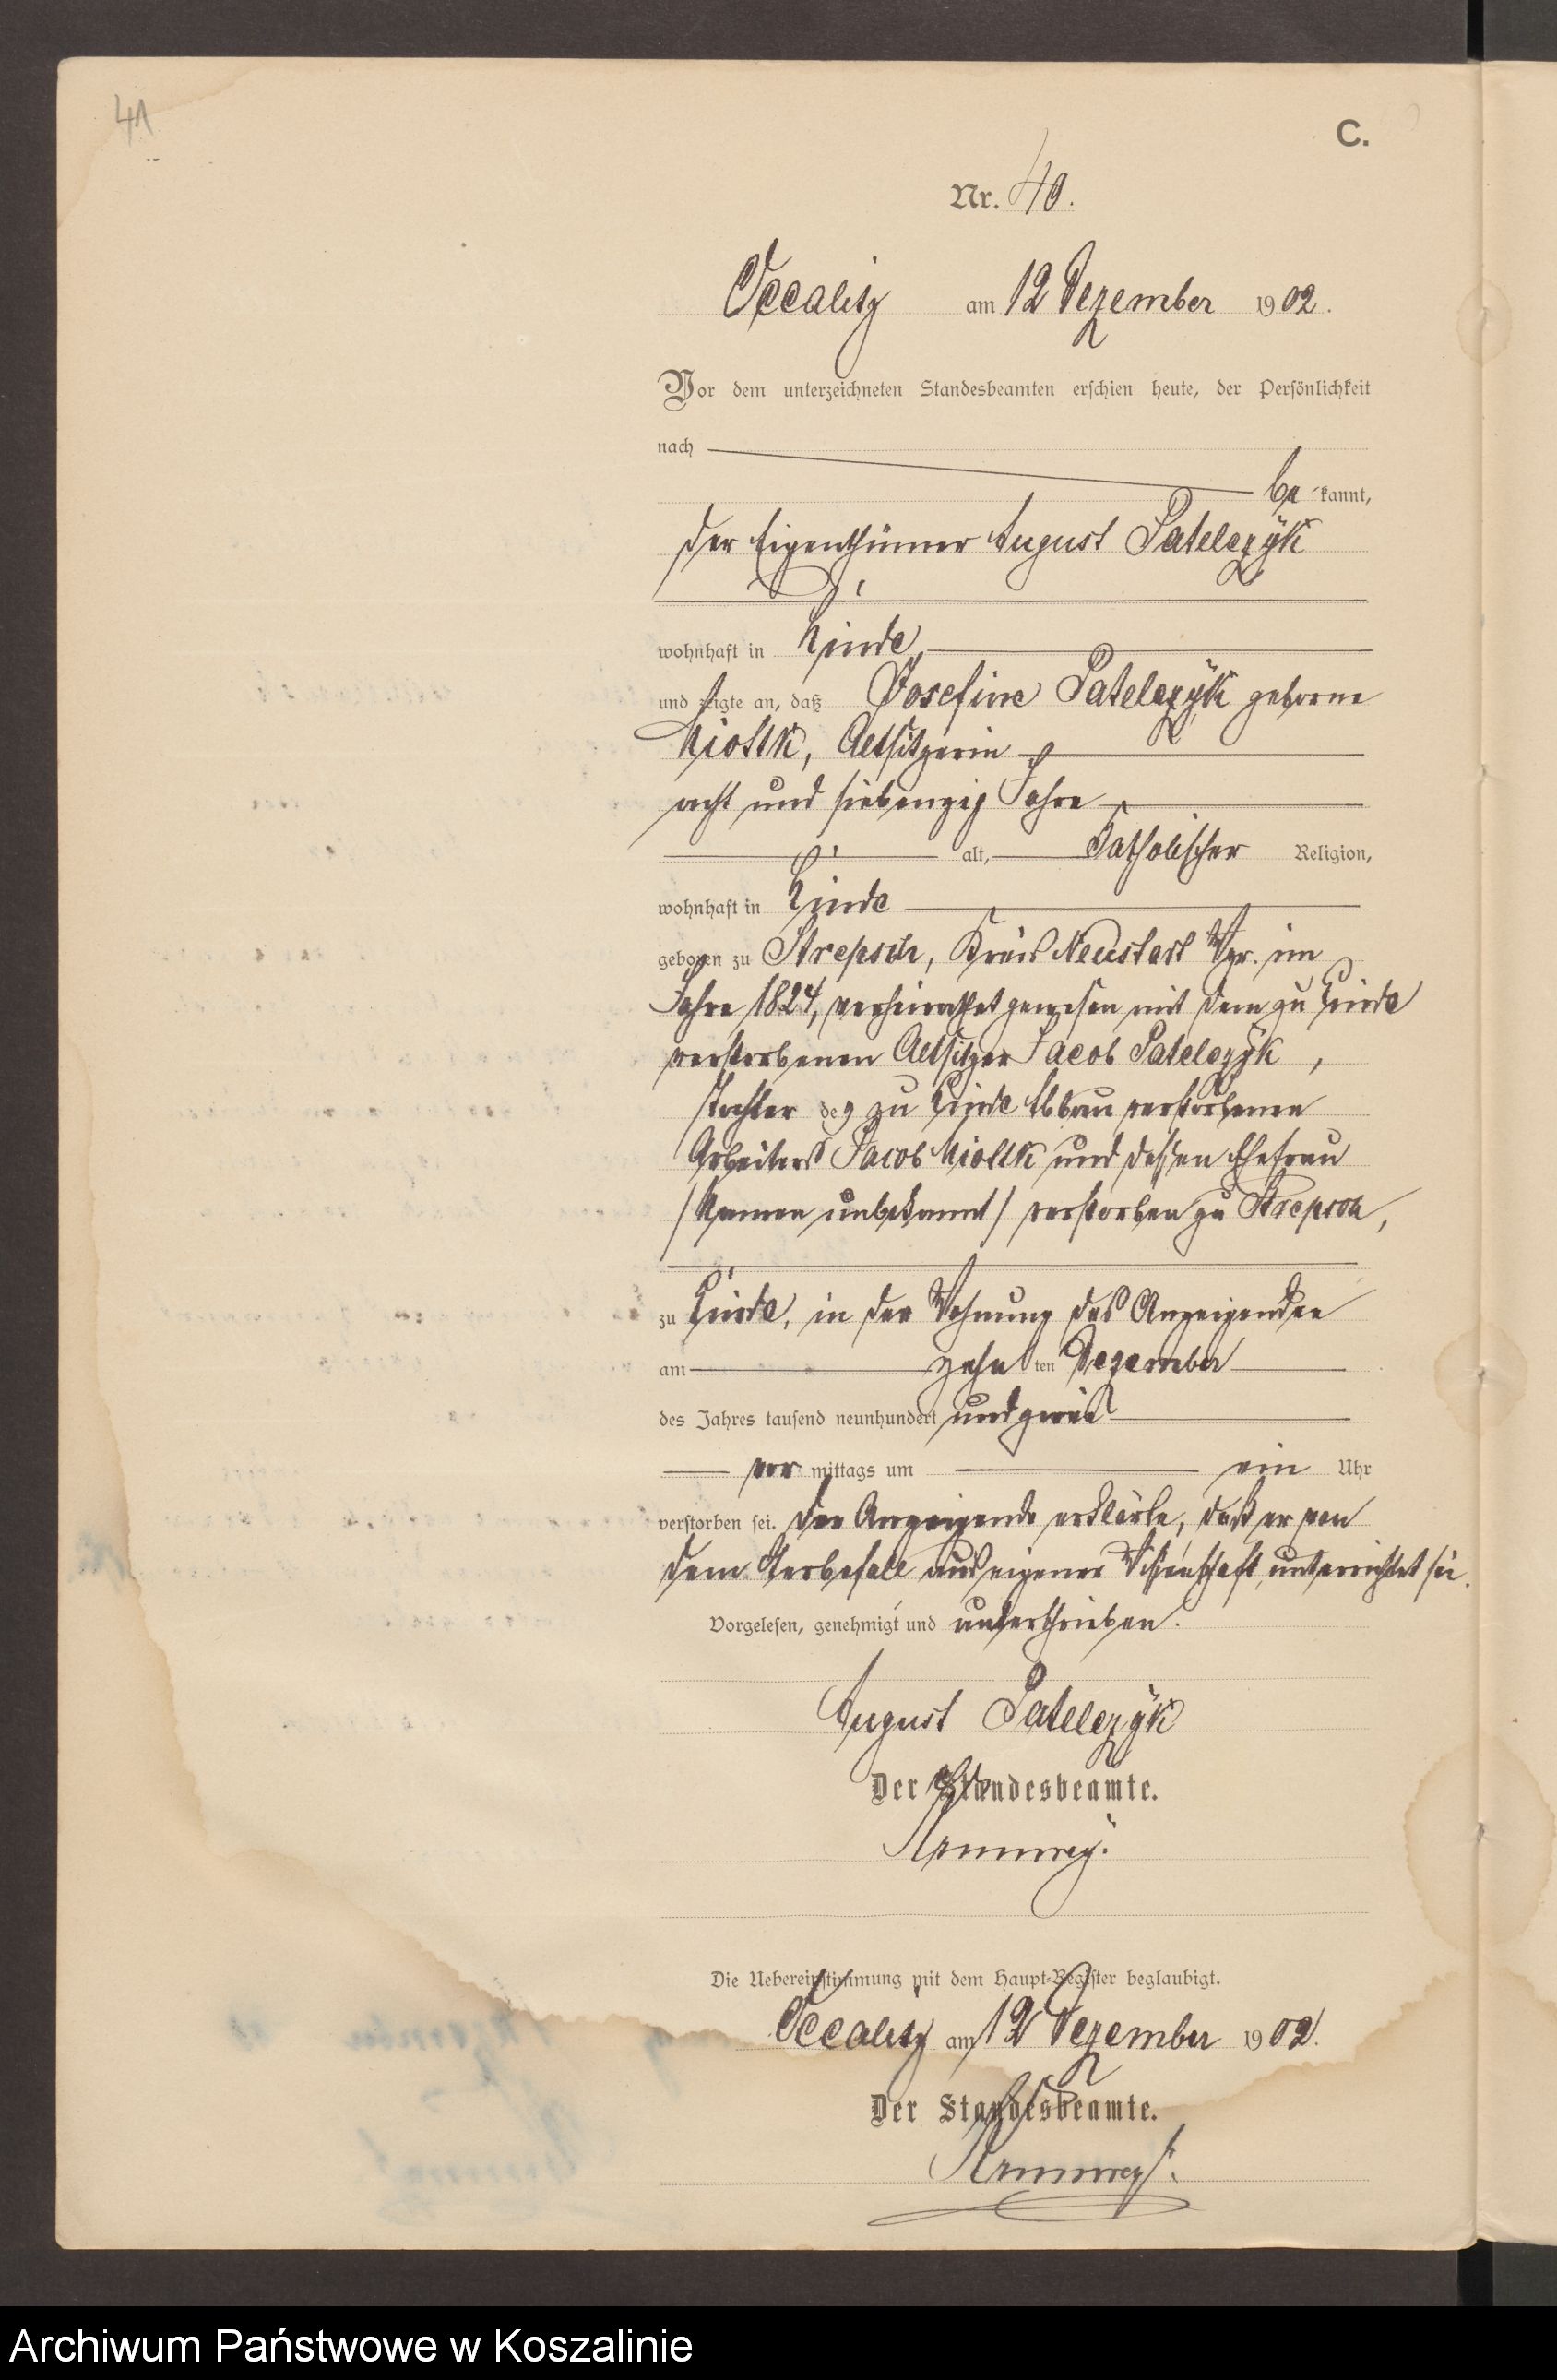 41
C.
Nr. 40.
Occalitz am 12 Dezember 1902.
Vor dem unterzeichneten Standesbeamten erschien heute, der Persönlichkeit
nach
be kannt,
der Eigenthümer August Patelczÿk
wohnhaft in Linde,
und zeigte an, daß Josefine Patelczÿk geborne
Miottk, Altsitzerin
acht und siebenzig Jahre
alt, katholischer Religion,
wohnhaft in Linde
geboren zu Strepsch, Kreis Neustadt Wpr. im
Jahre 1824, verheirathet gewesen mit dem zu Linde
verstorbenen Altsitzer Jacob Patelczÿk,
Tochter des zu Linde Abbau verstorbenen
Arbeiters Jacob Miottk und dessen Ehefrau
/Namen unbekannt/ verstorben zu Strepsch,
zu Linde, in der Wohnung des Anzeigenden
am zehn ten Dezember
des Jahres tausend neunhundert und zwei
vor mittags um ein Uhr
verstorben sei. Der Anzeigende erklärte, daß er von
dem Sterbefall aus eigener Wissenschaft unterrichtet sei.
Vorgelesen, genehmigt und unterschrieben.
August Patelczÿk
Der Standesbeamte.
Die Uebereinstimmung mit dem Haupt-Register beglaubigt.
Occalitz am 12 Dezember 1902.
Der Standesbeamte.
Archiwum Państwowe w Koszalinie